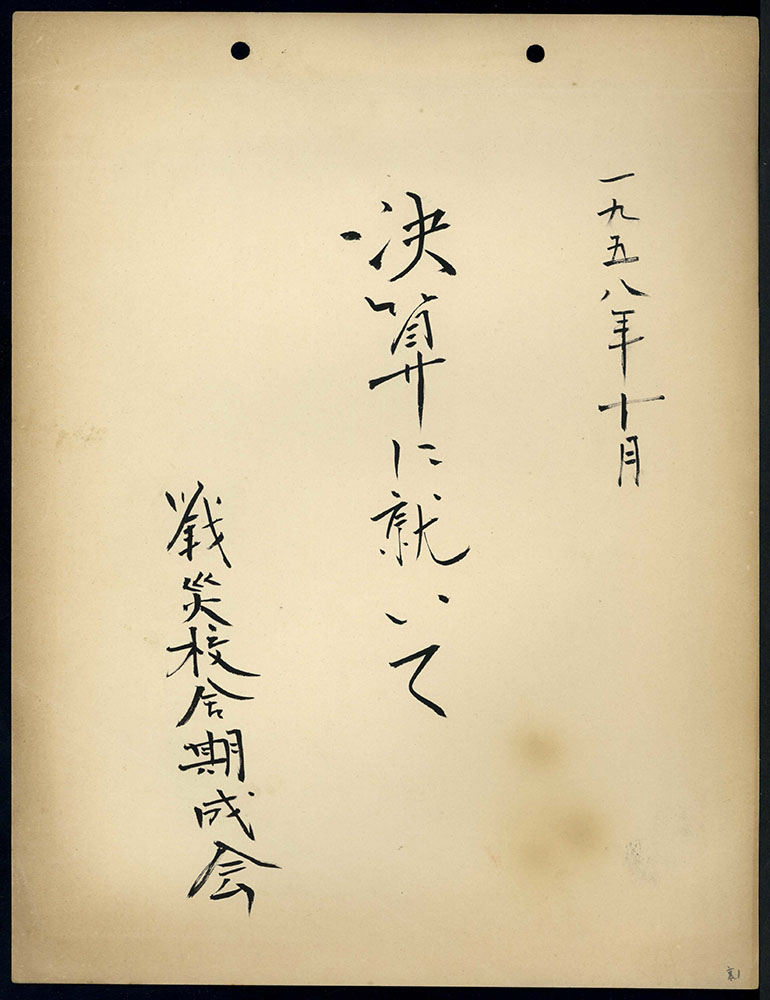 一九五八年十月
決算に就いて
戦災校舎期成会